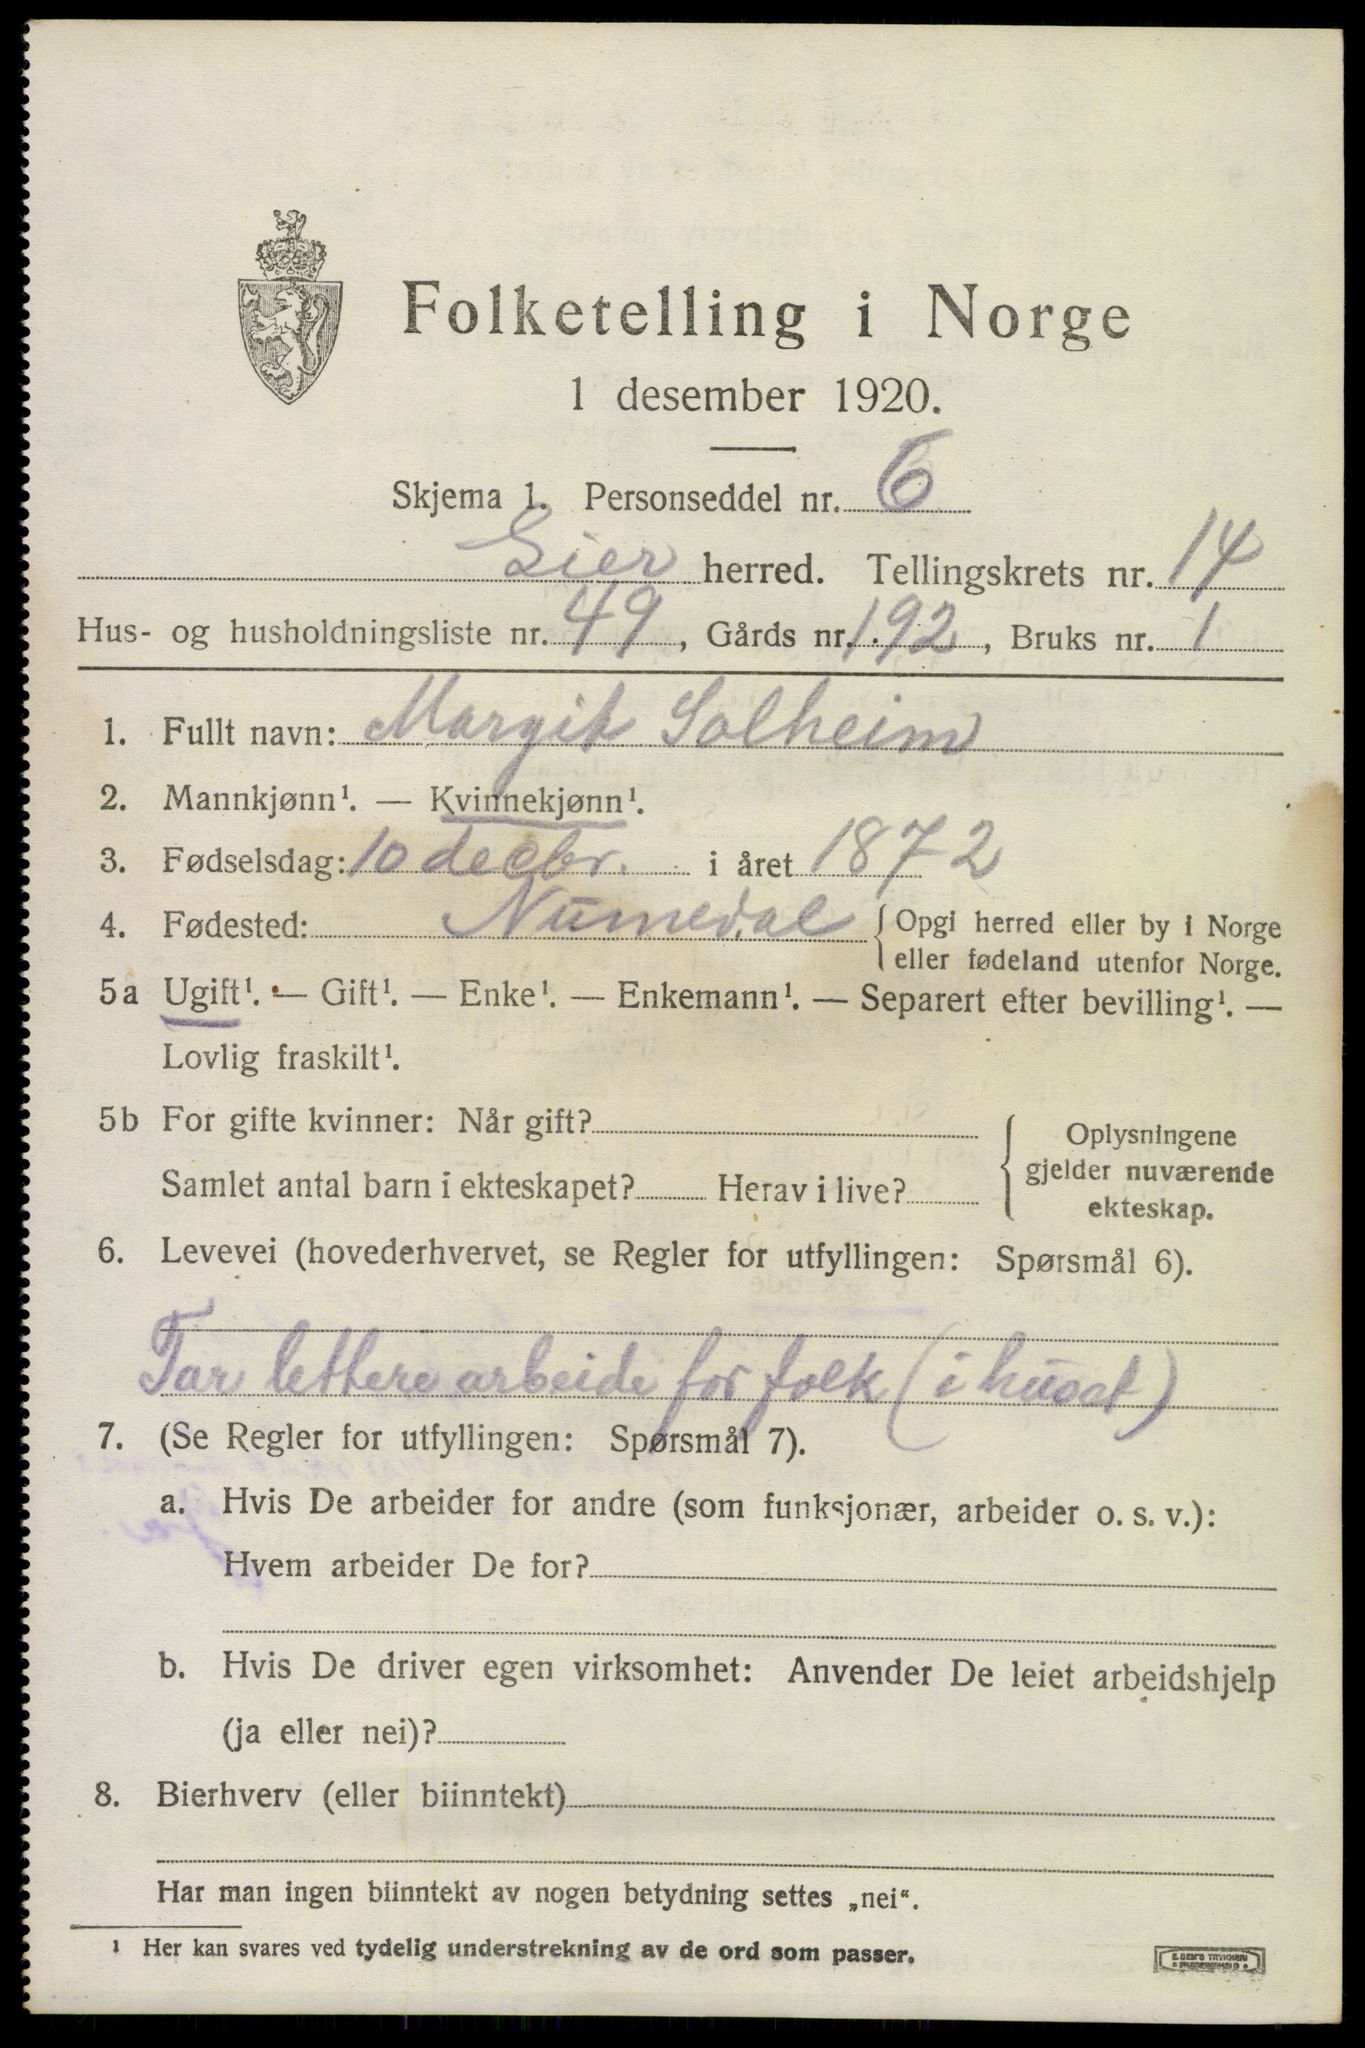 Folketelling i Norge
1 desember 1920.
Skjema 1. Personseddel nr. 6
Lier herred. Tellingskrets nr. 14
Hus- og husholdningsliste nr. 49, Gårds nr. 192, Bruks nr. 1
1. Fullt navn: Margit Solheim
2. Mannkjønn¹. — Kvinnekjønn¹.
3. Fødselsdag: 10 decbr. i året 1872
4. Fødested: Numedal { Opgi herred eller by i Norge
eller fødeland utenfor Norge.
5a Ugift¹. — Gift¹. — Enke¹. — Enkemann¹. — Separert efter bevilling¹. —
Lovlig fraskilt¹.
5b For gifte kvinner: Når gift?
Samlet antal barn i ekteskapet? Herav i live?
{ Oplysningene
gjelder nuværende
ekteskap.
6. Levevei (hovederhvervet, se Regler for utfyllingen: Spørsmål 6).
Tar lettere arbeide for folk (i huset)
7. (Se Regler for utfyllingen: Spørsmål 7).
a. Hvis De arbeider for andre (som funksjonær, arbeider o. s. v.):
Hvem arbeider De for?
b. Hvis De driver egen virksomhet: Anvender De leiet arbeidshjelp
(ja eller nei)?
8. Bierhverv (eller biinntekt)
Har man ingen biinntekt av nogen betydning settes „nei“.
¹ Her kan svares ved tydelig understrekning av de ord som passer.